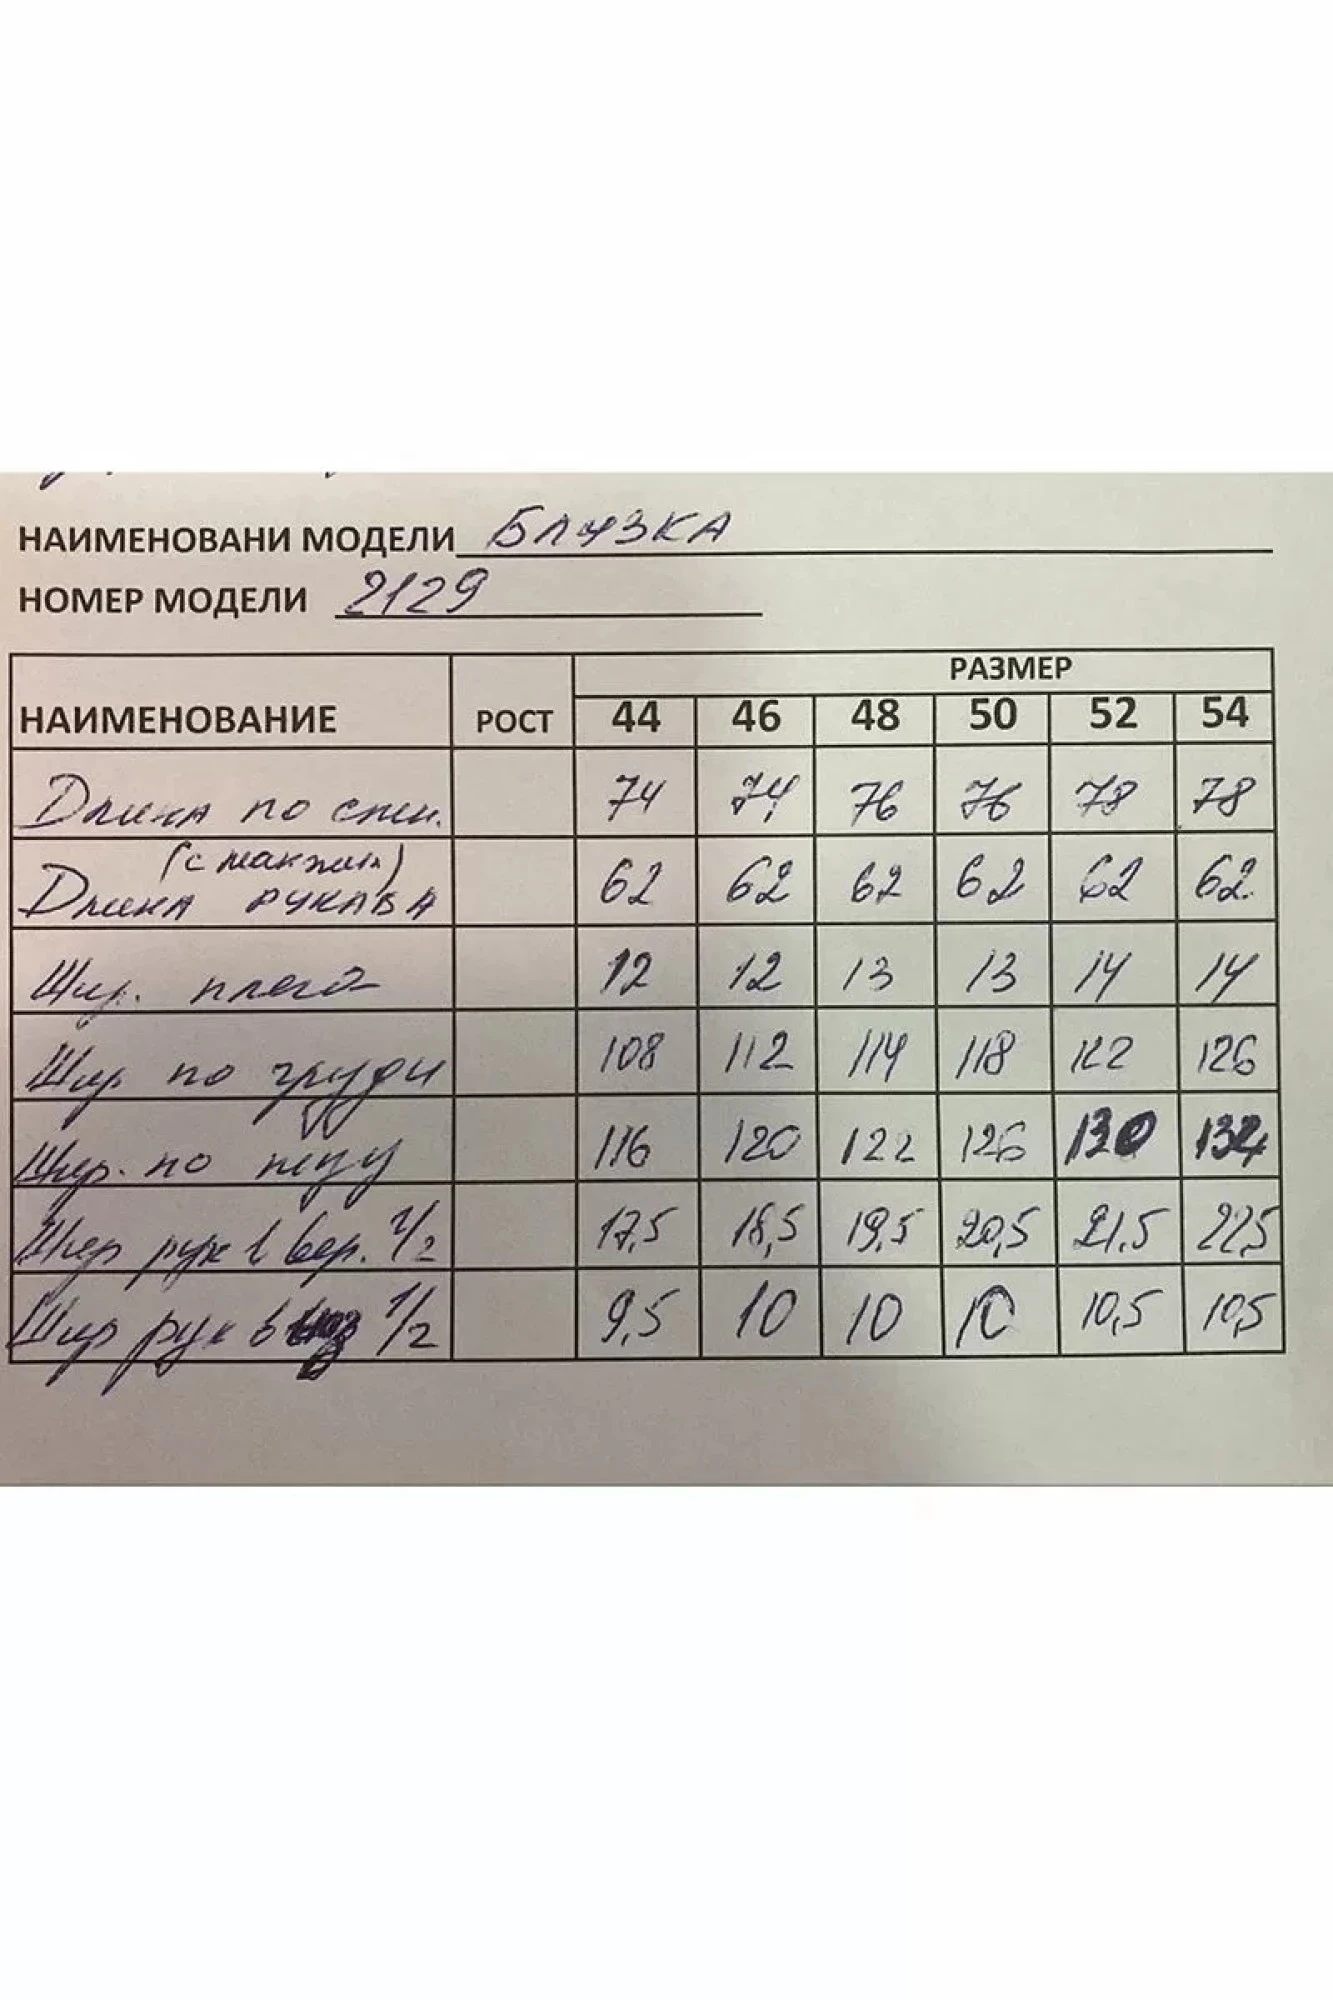 НАИМЕНОВАНИ МОДЕЛИ Блузка
НОМЕР МОДЕЛИ 2129
РАЗМЕР
НАИМЕНОВАНИЕ РОСТ 44 46 48 50 52 54
Длина по спин. 74 74 76 76 78 78
(с манжет)
Длина рукава 62 62 62 62 62 62
Шир. плеча 12 12 13 13 14 14
Шир по груди 108 112 114 118 122 126
Шир. по низу 116 120 122 126 130 134
Шир рук в вер. 1/2 17,5 18,5 19,5 20,5 21,5 22,5
Шир рук в низ 1/2 9,5 10 10 10 10,5 10,5